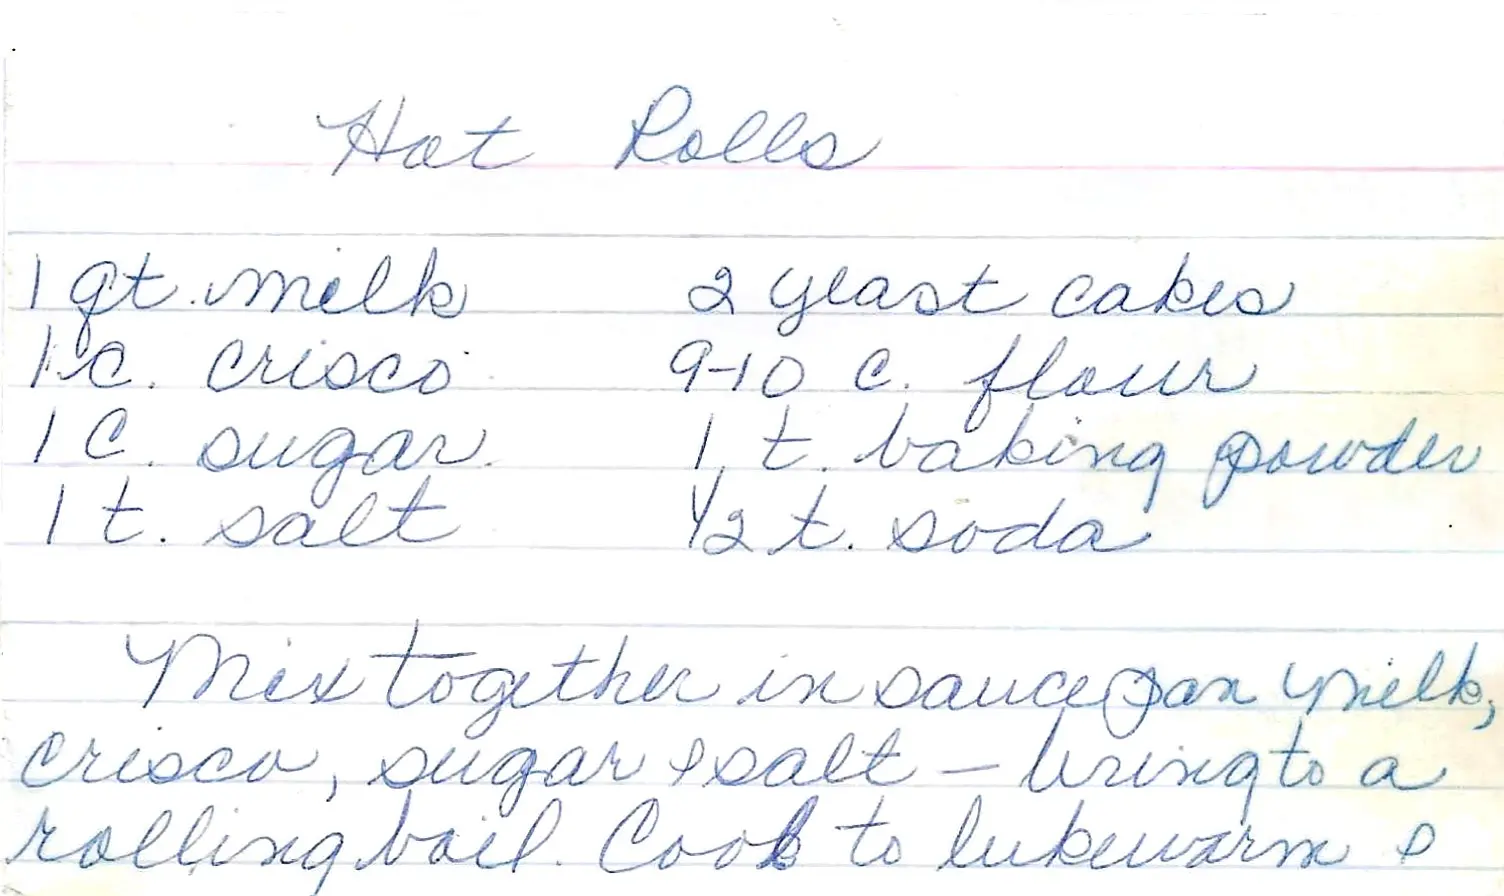 Hot Rolls
1 qt. milk 2 yeast cakes
1 c. crisco 9-10 c. flour
1 C. sugar 1 t. baking powder
1 t. salt 1/2 t. soda
Mix together in sauce pan milk,
crisco, sugar & salt - bring to a
rolling boil. Cook to lukewarm &